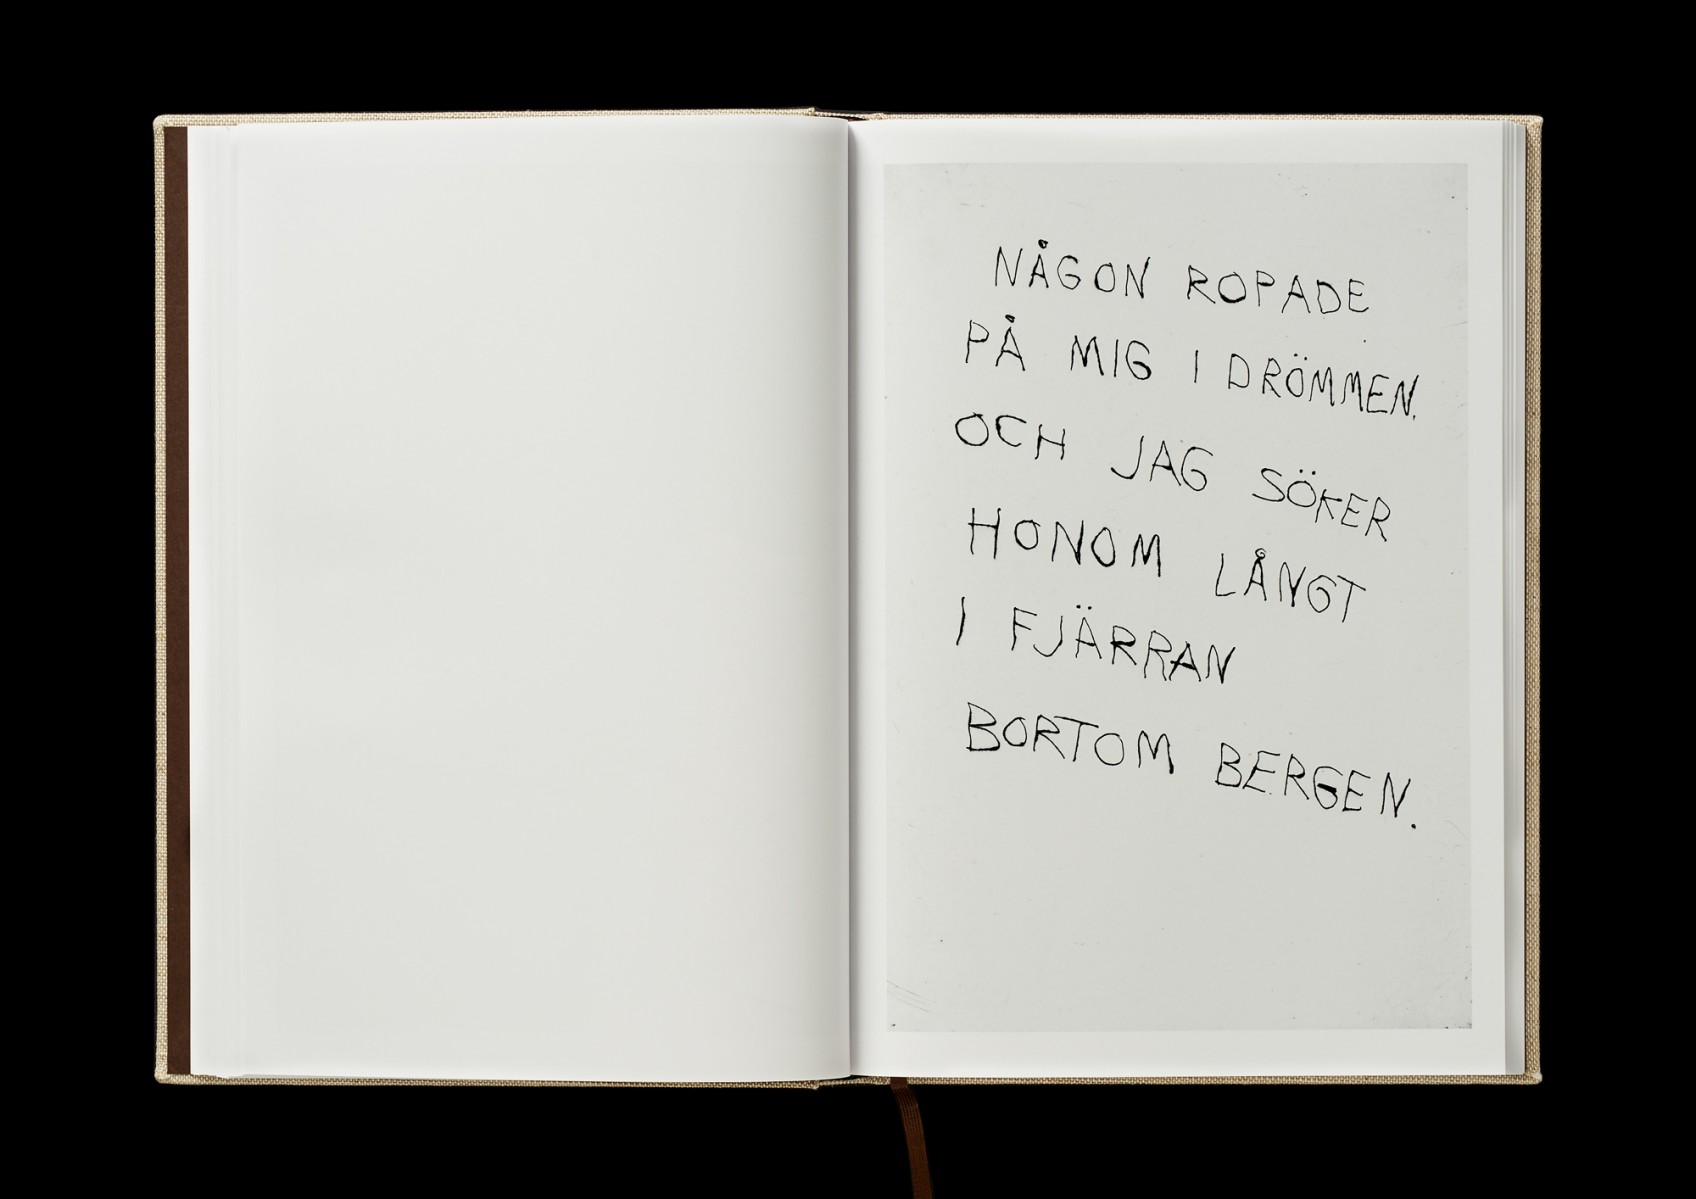 NÅGON ROPADE
PÅ MIG I DRÖMMEN.
OCH JAG SÖKER
HONOM LÅNGT
I FJÄRRAN
BORTOM BERGEN.